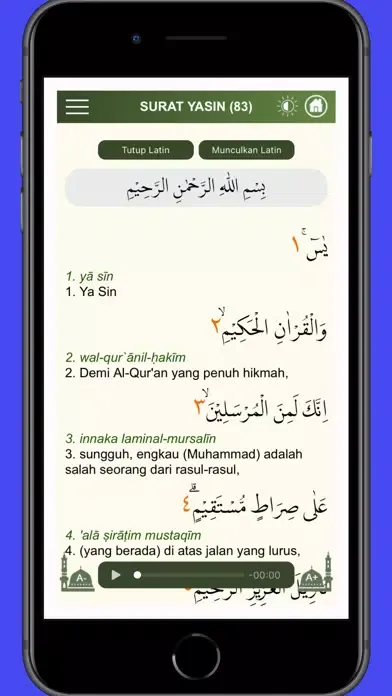 SURAT YASIN (83)
Tutup Latin
Munculkan Latin
بِسْمِ اللّٰهِ الرَّحْمٰنِ الرَّحِيْمِ
يٰسۤ ۚ ١
1. yā sīn
1. Ya Sin
وَالْقُرْاٰنِ الْحَكِيْمِۙ ٢
2. wal-qur`ānil-ḥakīm
2. Demi Al-Qur'an yang penuh hikmah,
اِنَّكَ لَمِنَ الْمُرْسَلِيْنَۙ ٣
3. innaka laminal-mursalīn
3. sungguh, engkau (Muhammad) adalah
salah seorang dari rasul-rasul,
عَلٰى صِرَاطٍ مُّسْتَقِيْمٍۗ ٤
4. 'alā ṣirāṭim mustaqīm
4. (yang berada) di atas jalan yang lurus,
A-
-00:00
A+